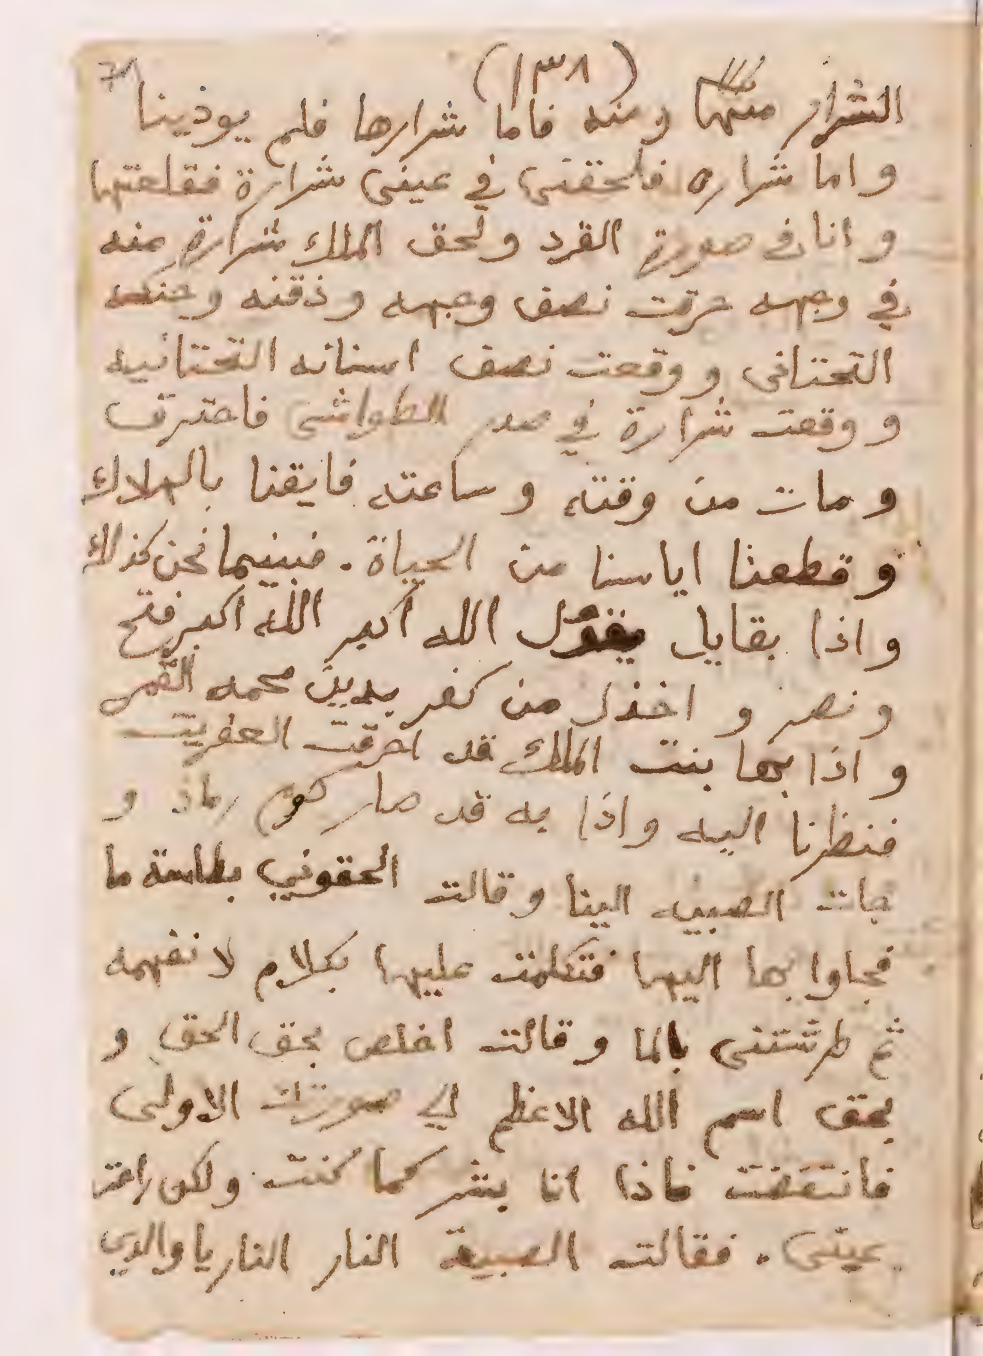 (١٣٨)
الشرار منها ومنه فاما شرارها فلم يوذينا
واما شراره فلحقنى في عينى شرارة فقلعتها
وانا فى صورة القرد ولحق الملك شرارة منه
في وجهه حرقت نصف وجهه وذقنه وحنكه
التحتانى ووقعت نصف اسنانه التحتانيه
ووقعت شرارة في صدر الطواشى فاحترق
ومات من وقته وساعته فايقنا بالهلاك
وقطعنا اياسنا من الحياة. فبينما نحن كذلك
واذا بقايل يقول الله اكبر الله اكبر فتح
ونصر واخذل من كفر بدين محمد القمر
واذا بها بنت الملك قد احرقت العفريت
فنظرنا اليه واذا به قد صار كوم رماد و
جات الصبيه الينا وقالت الحقوني بطاسة ما
فجاوا بها اليها فتكلمت عليها بكلام لا نفهمه
ثم طرشتنى بالما وقالت اخلص بحق الحق و
بحق اسم الله الاعظم الى صورتك الاولى
فانتفضت فاذا انا بشر كما كنت ولكن راحت
عينى. فقالت الصبية النار النار يا والدى